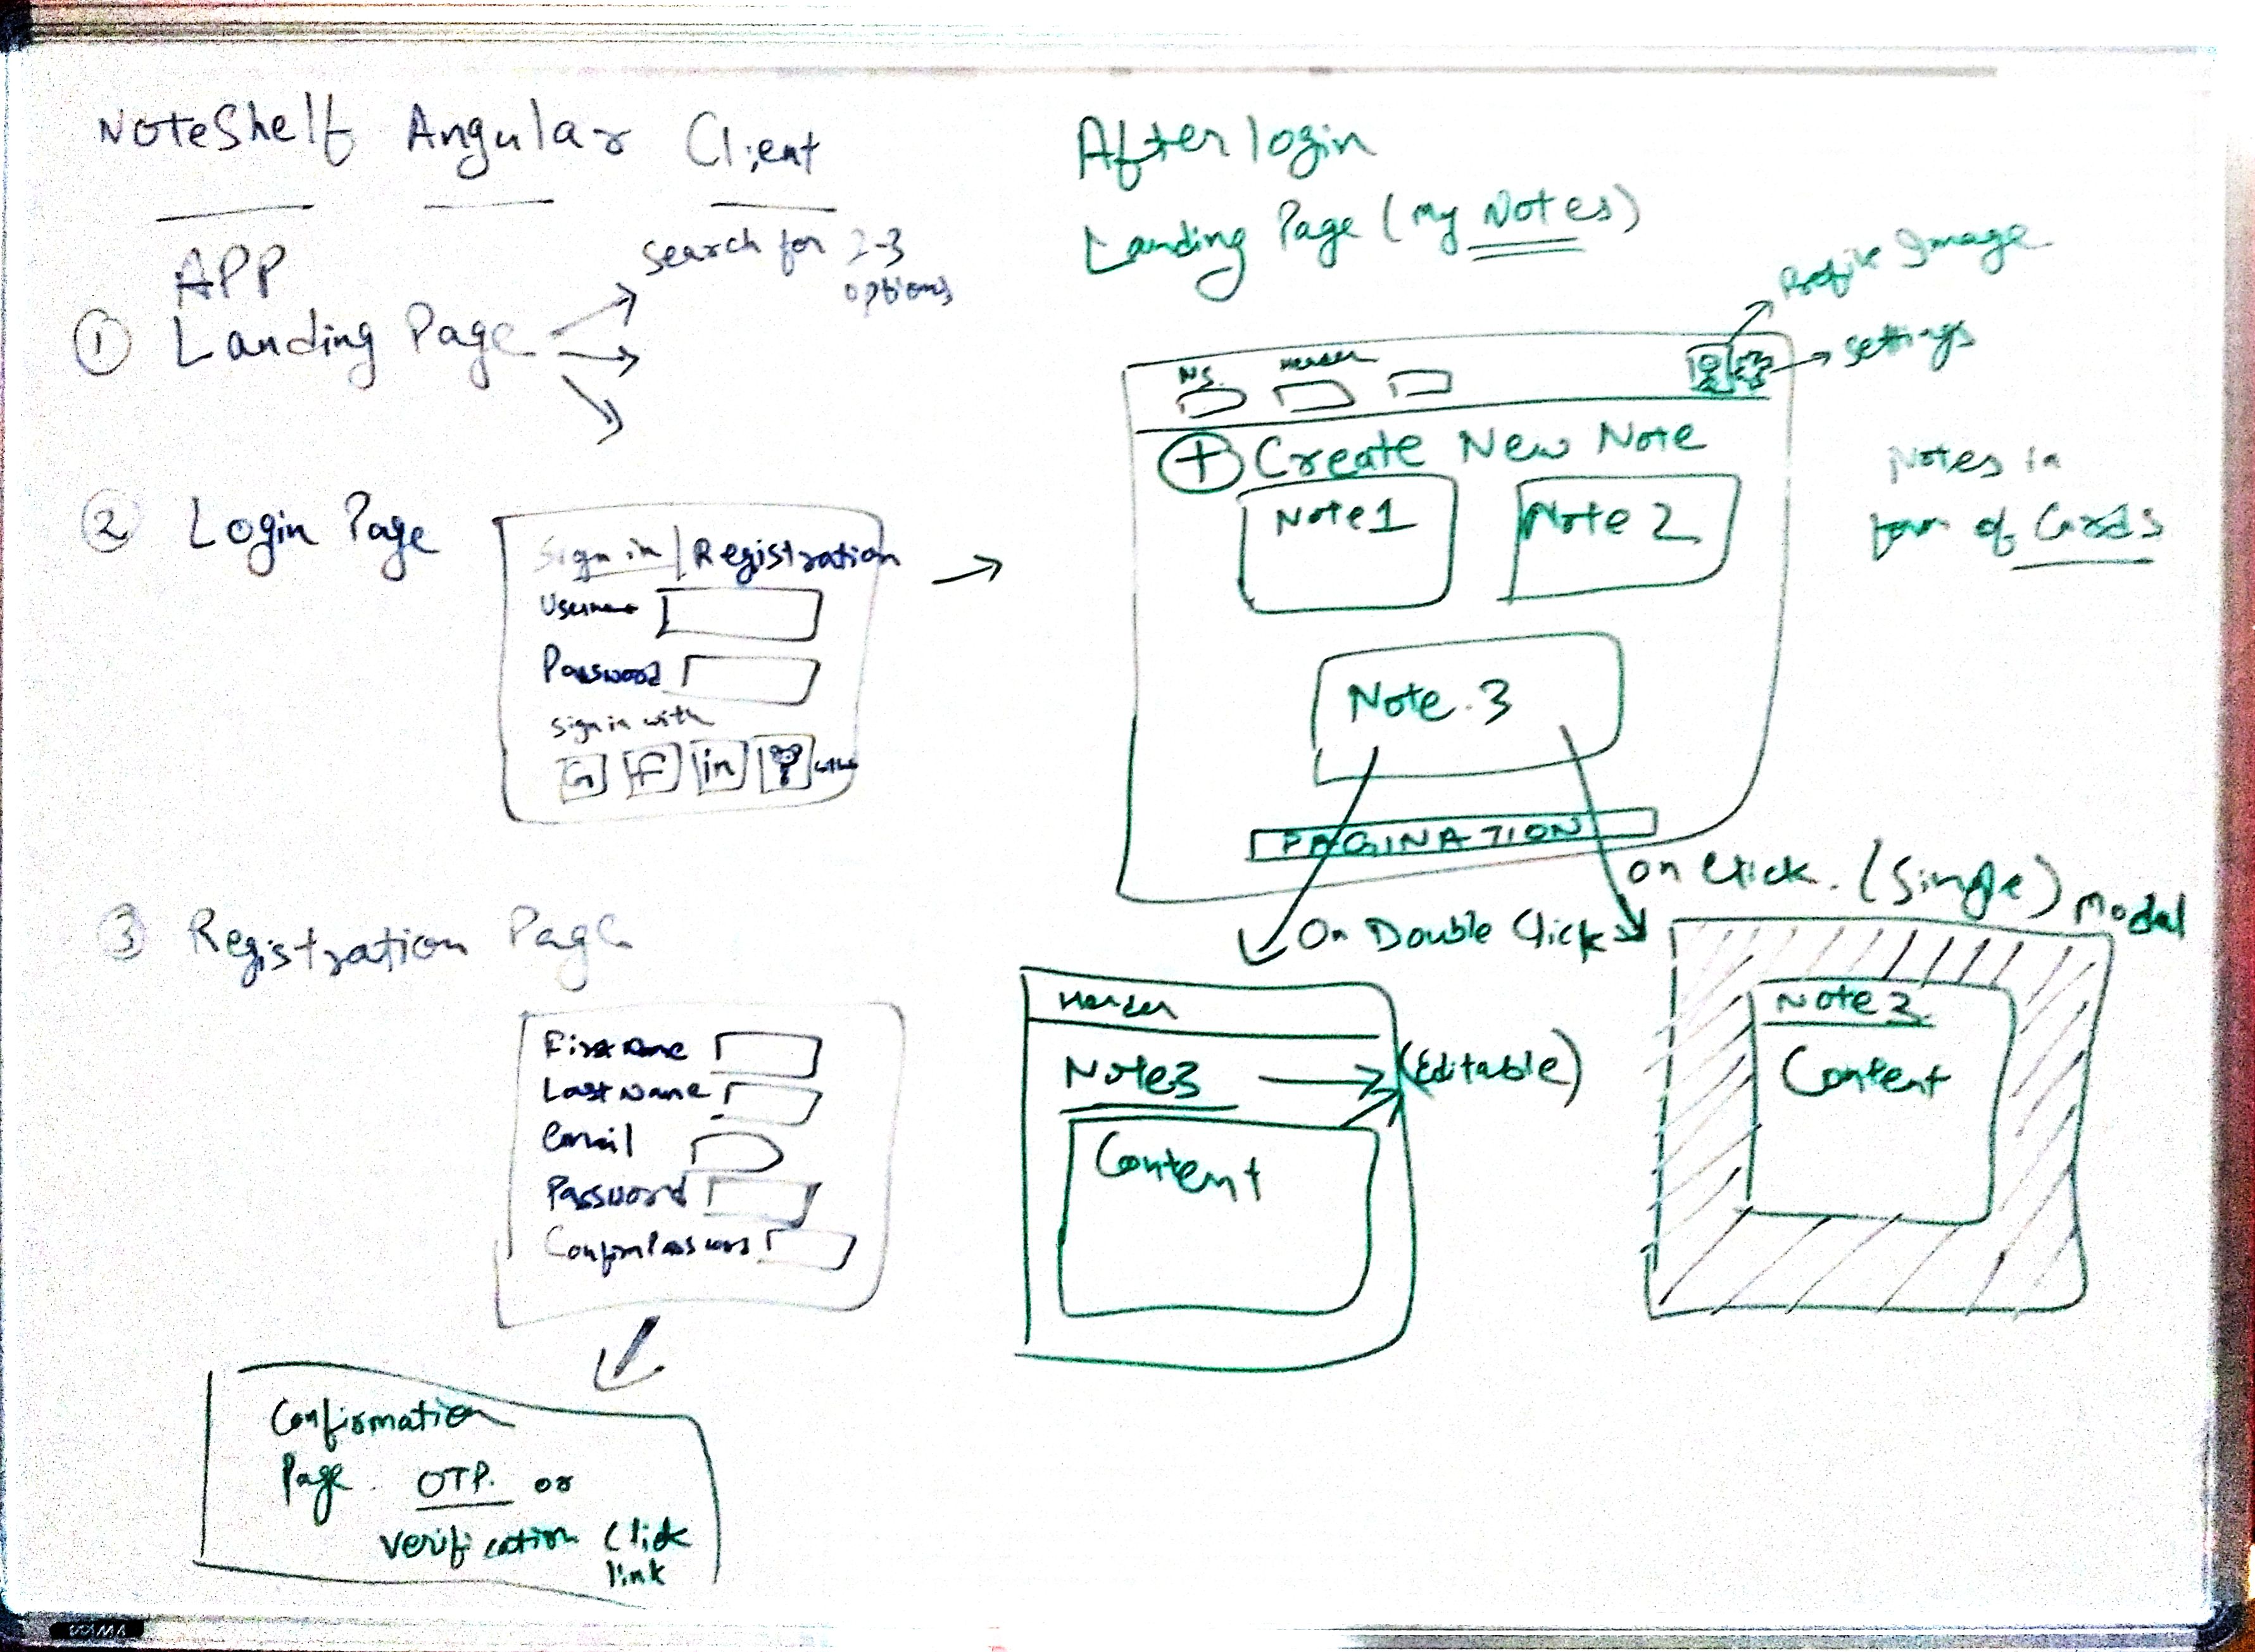 NoteShelf Angular Client
APP
① Landing Page
search for 2-3
options
② Login Page
Sign in | Registration
Username
Password
sign in with
G f in
③ Registration Page
First Name
Last Name
Email
Password
Confirm Password
Confirmation
Page. OTP. or
verification click
link
After login
Landing Page (My Notes)
Profile Image
Settings
NS. Header
+ Create New Note
Note 1 Note 2
Note.3
PAGINATION
Notes in
form of Cards
On Click. (Single) Modal
On Double Click
Header
Note3 (Editable)
Content
Content